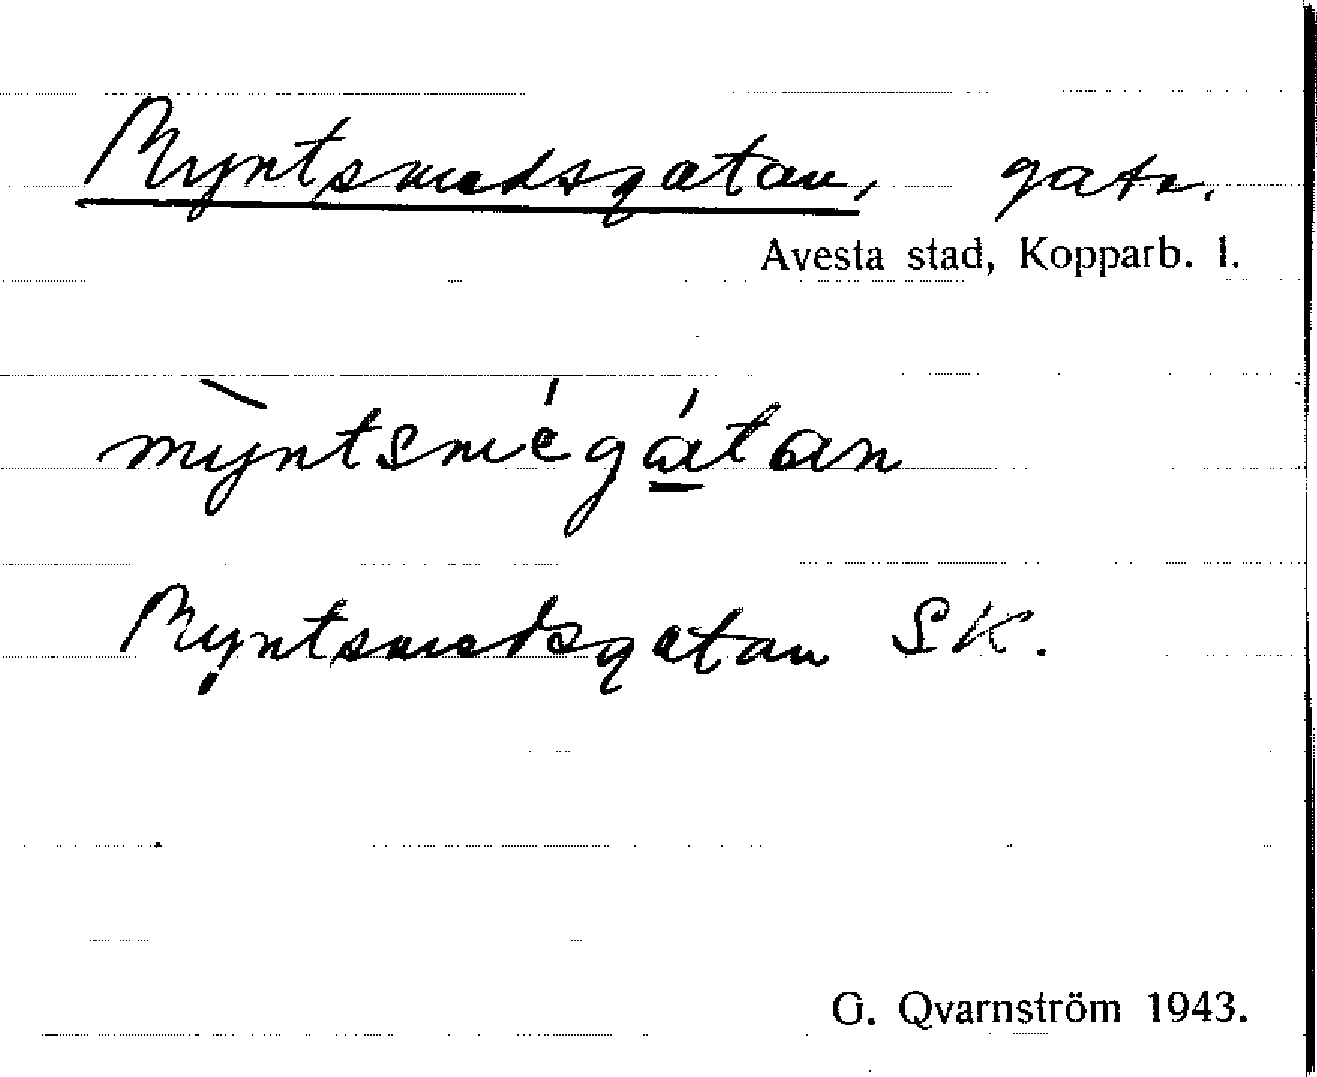 Myntsmedsgatan, gata.
Avesta stad, Kopparb. l.
mỳntsmégátan
Myntsmedsgatan SK.
G. Qvarnström 1943.